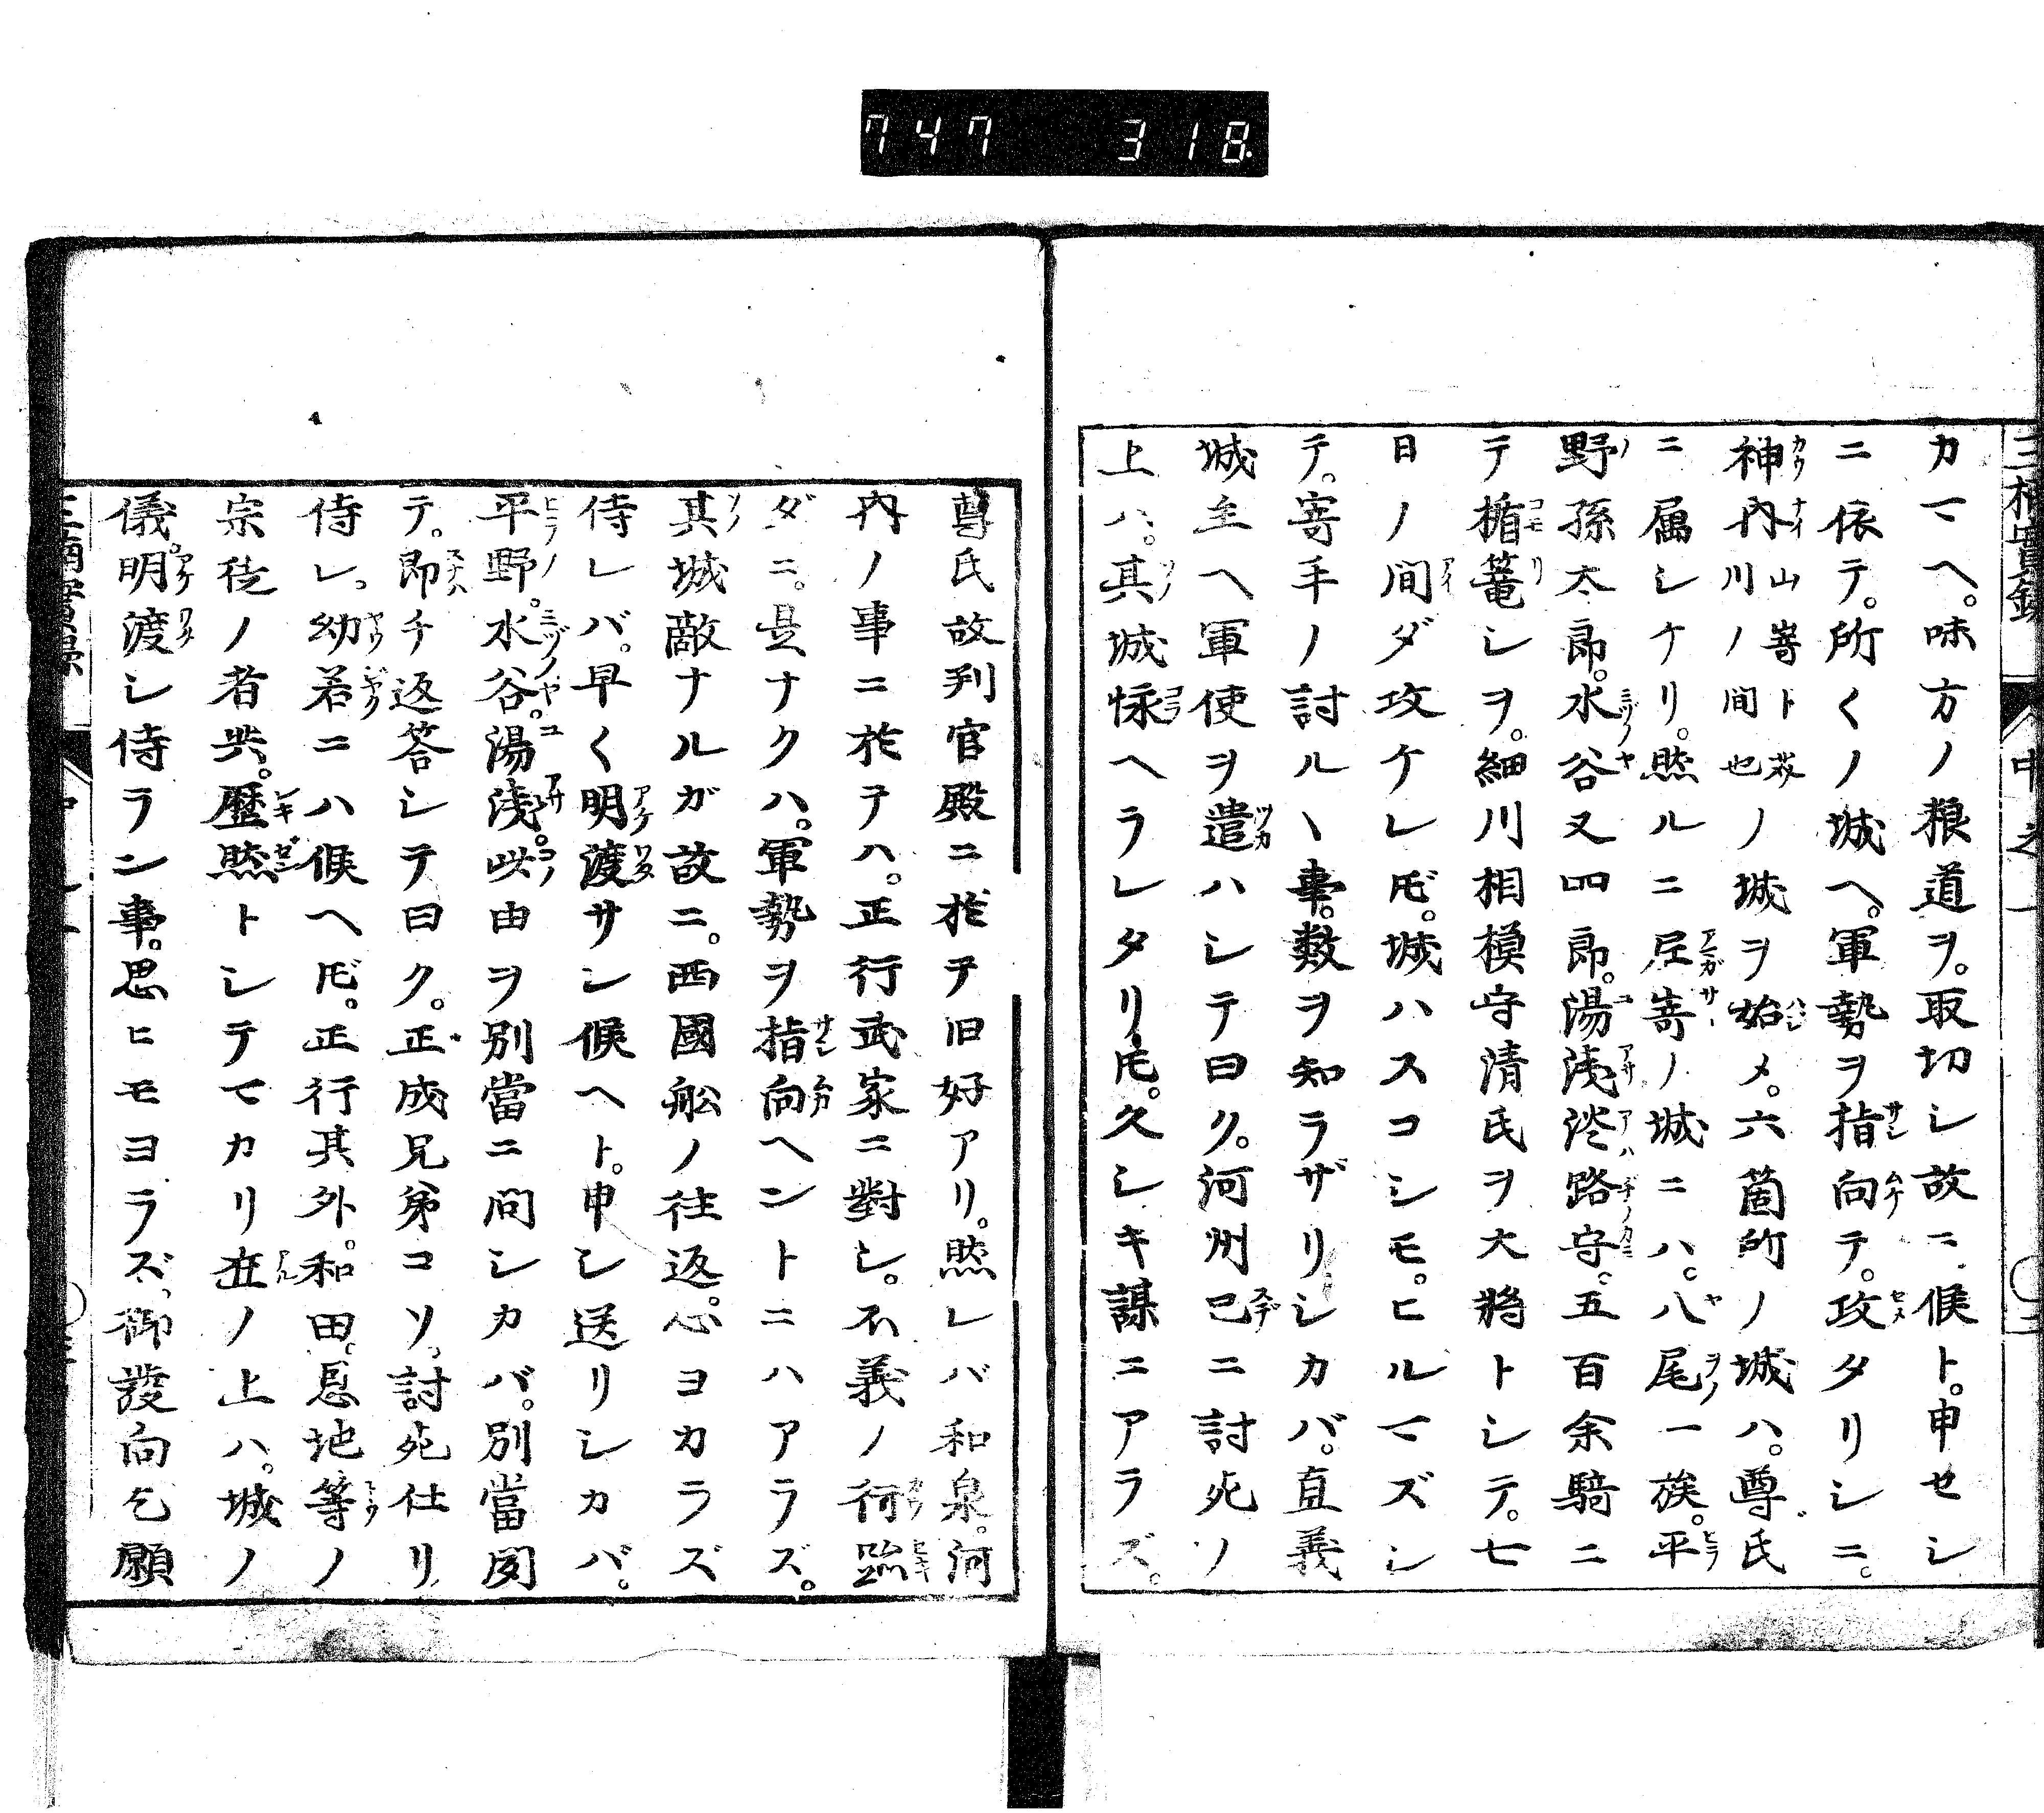 747 318
カマヘ。味方ノ粮道ヲ。取切シ故ニ、候ト。申セシ
ニ依テ。所〱ノ城ヘ。軍勢ヲ指向テ。攻タリシニ。
神内山嵜ト芥川ノ間也ノ城ヲ始メ。六箇所ノ城ハ。尊氏
ニ属シケリ。然ルニ尼嵜ノ城ニハ。八尾一族。平
野孫太郎。水谷又四郎。湯浅淡路守。五百余騎ニ
テ楯篭シヲ。細川相模守清氏ヲ大将トシテ。七
日ノ間ダ攻ケレ𪜈。城ハスコシモ。ヒルマズシ
テ。寄手ノ討ルヽ事。数ヲ知ラザリシカバ。直義
城主ヘ軍使ヲ遣ハシテ曰ク。河州已ニ討死ノ
上ハ。其城怺ヘラレタリ𪜈。久シキ謀ニアラズ。
尊氏故判官殿ニ於テ旧好アリ。然レバ和泉。河
内ノ事ニ於テハ。正行武家ニ對シ。不義ノ行跡
ダニ。是ナクハ。軍勢ヲ指向ヘントニハアラズ。
其城敵ナルガ故ニ。西國舩ノ往返。心ヨカラズ
侍レバ。早く明渡サシ候ヘト。申シ送リシカバ。
平野。水谷。湯浅。此由ヲ別當ニ問シカバ。別當聞
テ。即チ返答シテ曰ク。正成兄弟コソ。討死仕リ
侍レ。幼若ニハ候ヘ𪜈。正行其外。和田。恩地等ノ
宗徒ノ者共。歴然トシテマカリ在ノ上ハ。城ノ
儀。明渡シ侍ラン事。思ヒモヨラズ、御發向乞願